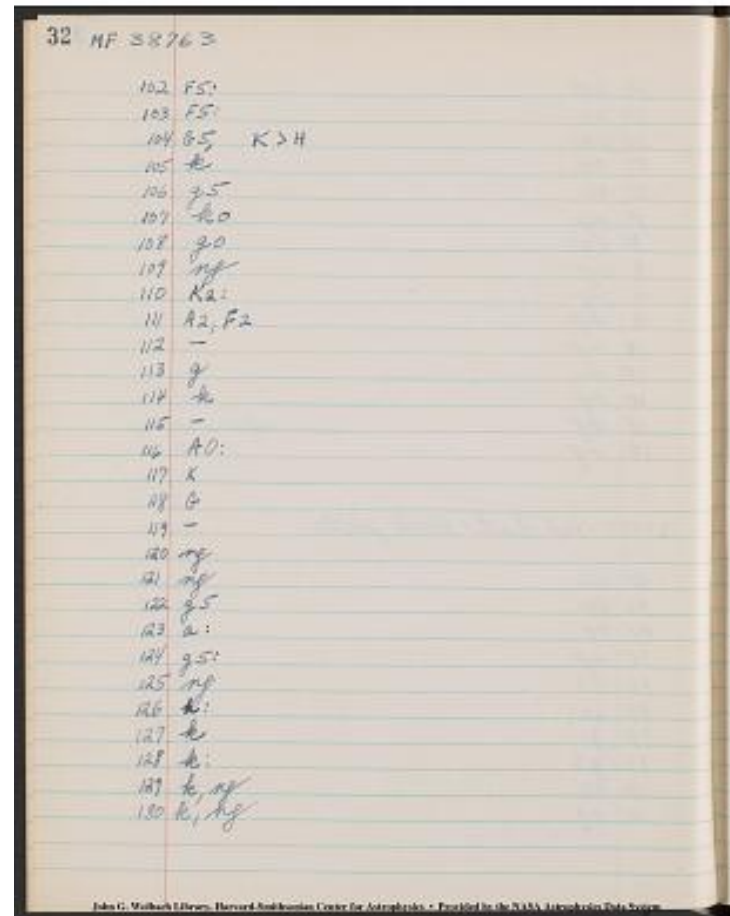 32 MF 38763
102 F5:
103 F5:
104 G5, K>H
105 k
106 g5
107 k0
108 g0
109 ng
110 K2:
111 A2, F2
112 -
113 g
114 k
115 -
116 A0:
117 K
118 G
119 -
120 ng
121 ng
122 g5
123 a:
124 g5:
125 ng
126 k:
127 k
128 k:
129 k, ng
130 k, ng
John G. Wolbach Library, Harvard-Smithsonian Center for Astrophysics • Provided by the NASA Astrophysics Data System